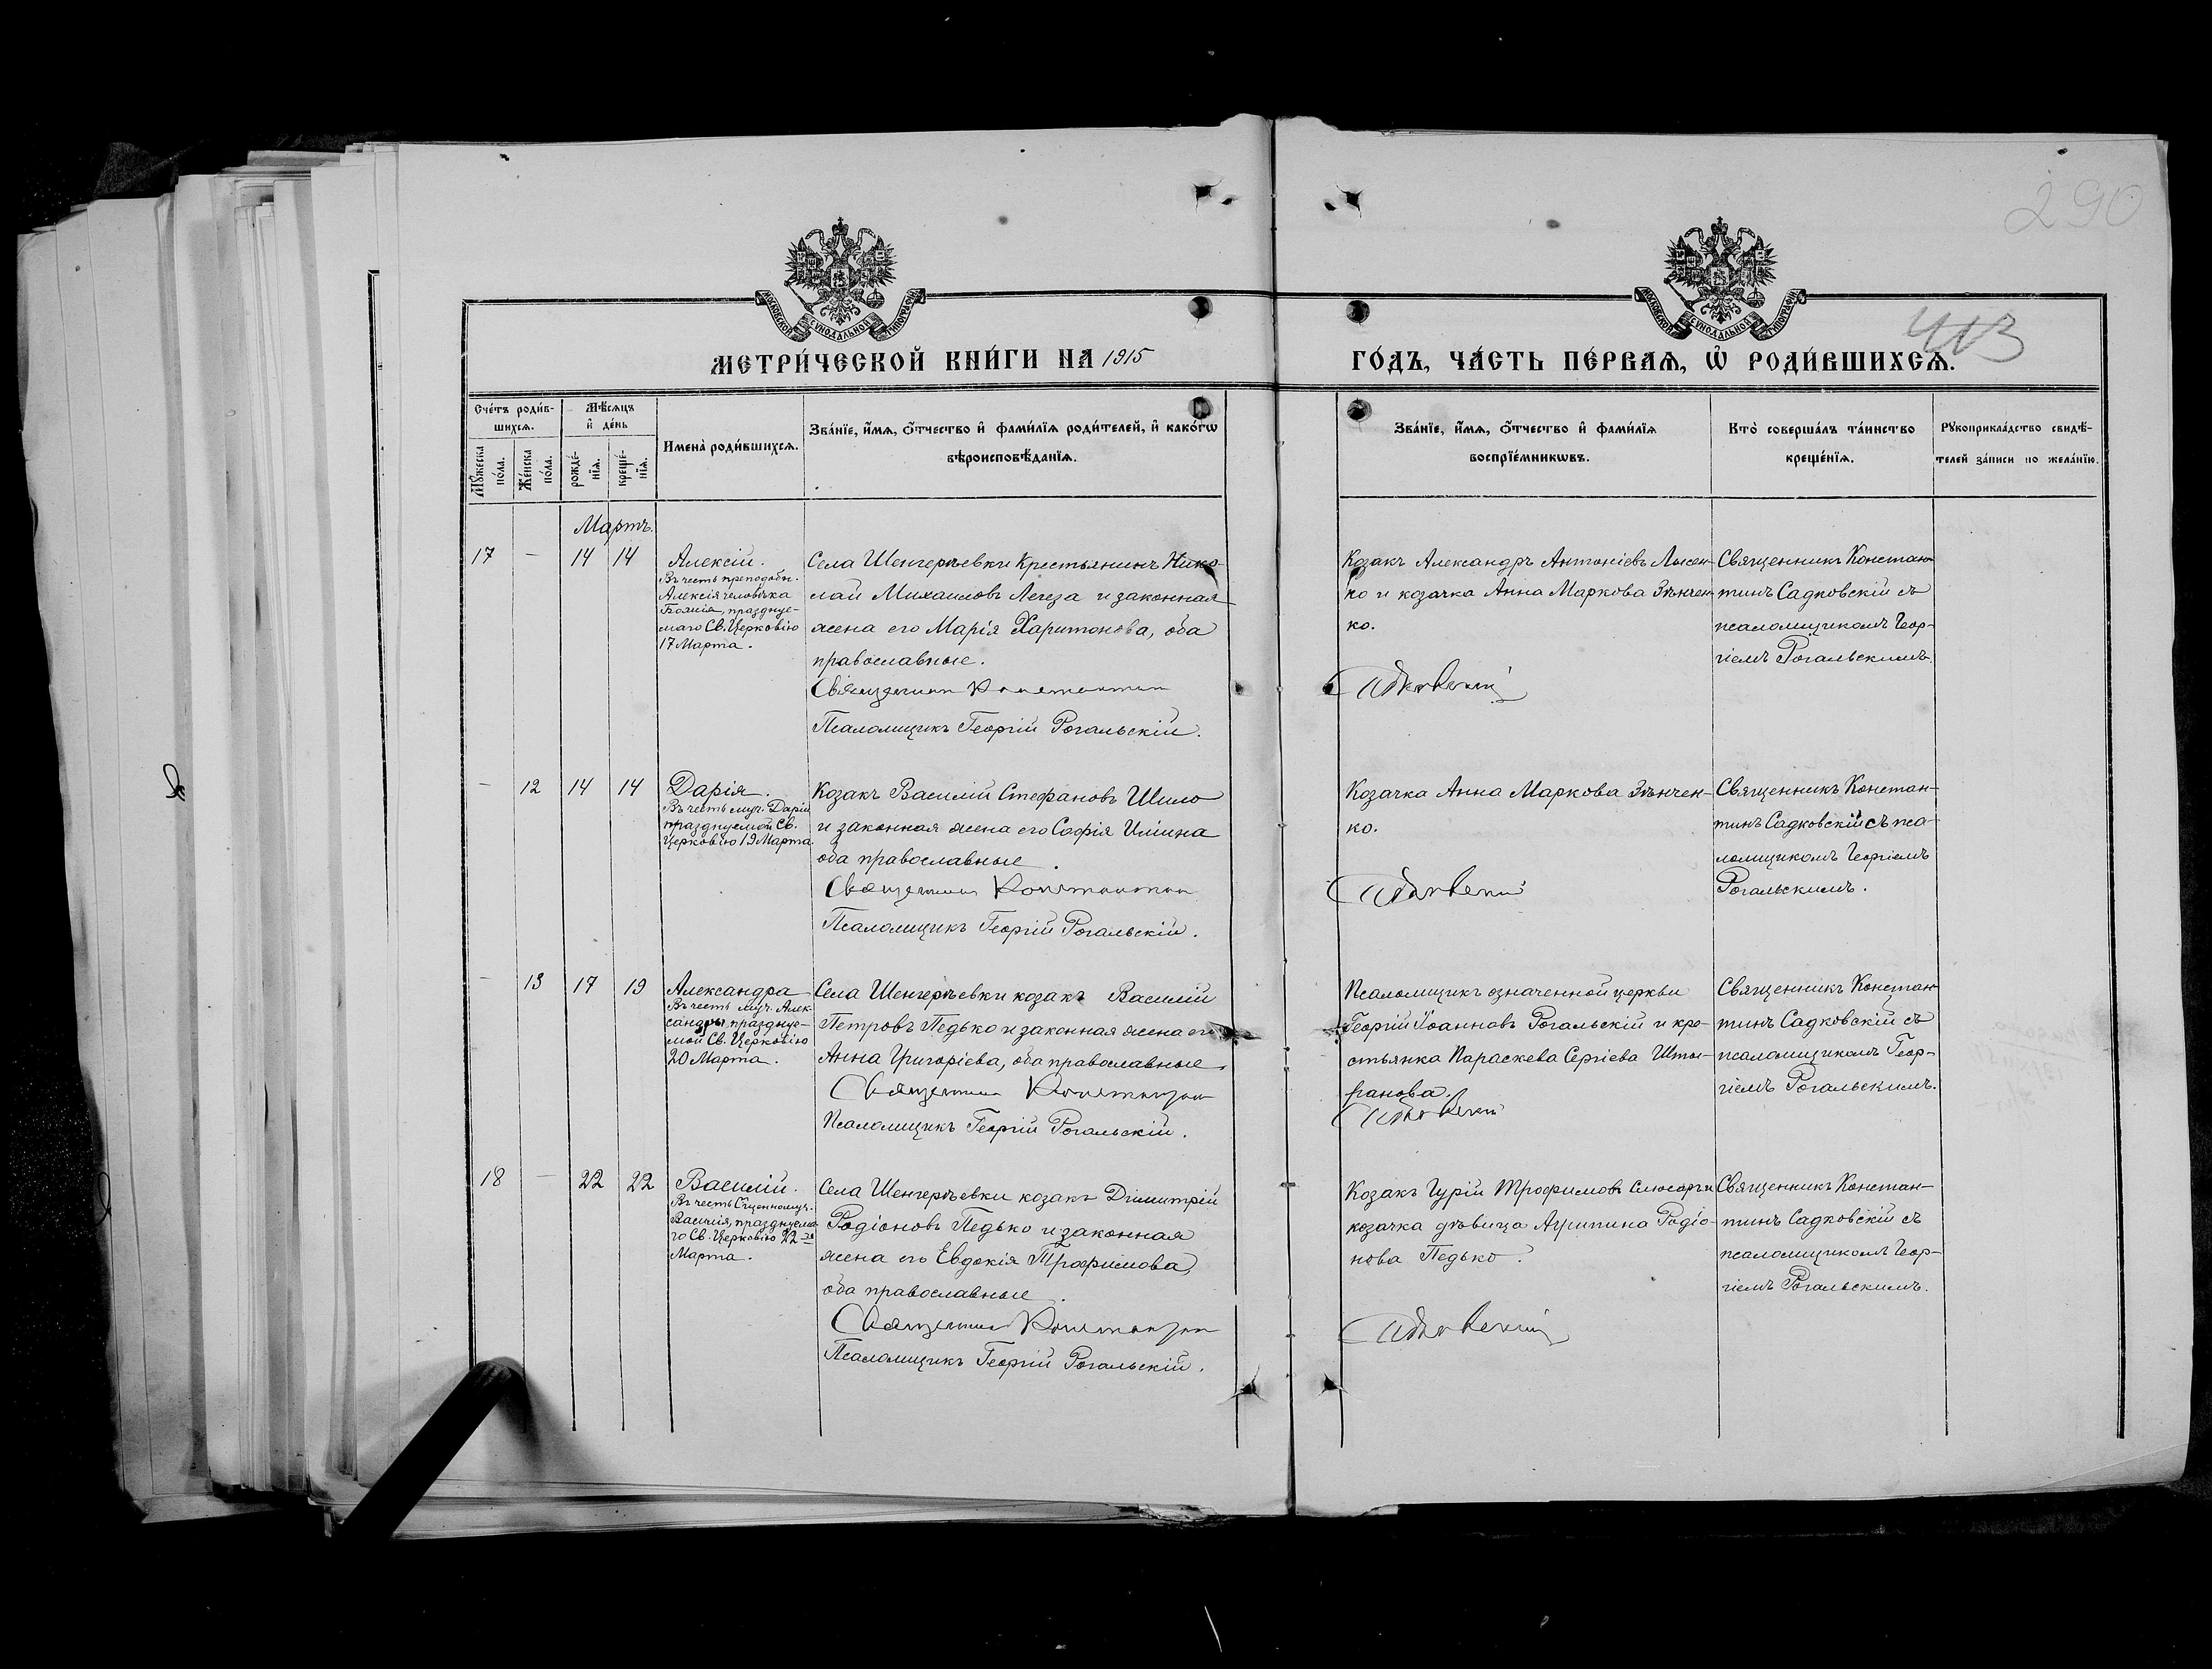 290
МОСКОВСКОЙ СѴНОДАЛЬНОЙ ТИПОГРАФІИ
МОСКОВСКОЙ СѴНОДАЛЬНОЙ ТИПОГРАФІИ
413
МЕТРИ́ЧЕСКОЙ КНИ́ГИ НА 1915
ГО́ДЪ, ЧА́СТЬ ПЕ́РВАѦ, Ѡ҆ РОДИ́ВШИХСѦ.
Сче́тъ роди́в-
шихсѧ.
Мѣ́сѧцъ
и҆ де́нь
Мꙋ́жеска
по́ла.
Же́нска
по́ла.
рожде́-
нїѧ.
креще́-
нїѧ.
Имена̀ роди́вшихсѧ.
Зва́нїе, и҆́мѧ, ѻ҆́тчество и҆ фами́лїѧ роди́телей, и҆ како́гѡ
вѣроисповѣ́данїѧ.
Зва́нїе, и҆́мѧ, ѻ҆́тчество и҆ фами́лїѧ
воспрїе́мникѡвъ.
Кто̀ соверша́лъ та́инство
креще́нїѧ.
Рꙋкоприкла́дство свидѣ́-
телей за́писи по жела́нїю.
Мартъ.
17 — 14 14
Алексій.
Въ честь преподобн.
Алексія человѣка
Божія, празднуе-
маго Св. Церковію
17 Марта.
Села Шенгерѣевки Крестьянинъ Нико-
лай Михаиловъ Легеза и законная
жена его Марія Харитонова, оба
православные.
Священникъ Константин
Псаломщикъ Георгій Рогальскій.
Козакъ Александръ Антоніевъ Лысен-
ко и козачка Анна Маркова Зѣнчен-
ко.
Садковскій
Священникъ Констан-
тинъ Садковскій съ
псаломщикомъ Геор-
гіемъ Рогальскимъ.
— 12 14 14
Дарія.
Въ честь муч. Даріи
празднуемой Св.
Церковію 19 Марта.
Козакъ Василій Стефановъ Шило
и законная жена его Софія Иліина
оба православные.
Священникъ Константин
Псаломщикъ Георгій Рогальскій.
Козачка Анна Маркова Зѣнчен-
ко.
Садковскій
Священникъ Констан-
тинъ Садковскій съ пса-
ломщикомъ Георгіемъ
Рогальскимъ.
— 13 17 19
Александра
Въ честь муч. Алек-
сандры, празднуе-
мой Св. Церковію
20 Марта.
Села Шенгерѣевки козакъ Василій
Петровъ Педько и законная жена его
Анна Григоріева, оба православные.
Священникъ Константин
Псаломщикъ Георгій Рогальскій.
Псаломщикъ означенной церкви
Георгій Іоанновъ Рогальскій и кре-
стьянка Параскева Сергіева
Садковскій
Священникъ Констан-
тинъ Садковскій съ
псаломщикомъ Геор-
гіемъ Рогальскимъ.
18 — 22 22
Василій.
Въ честь Сщенномуч.
Василія, празднуема-
го Св. Церковію 22-го
Марта.
Села Шенгерѣевки козакъ Димитрій
Родіоновъ Педько и законная
жена его Евдокія Трофимова,
оба православные.
Священникъ Константин
Псаломщикъ Георгій Рогальскій.
Козакъ Гурій Трофимовъ
козачка дѣвица Агрипина Родіо-
нова Педько.
Садковскій
Священникъ Констан-
тинъ Садковскій съ
псаломщикомъ Геор-
гіемъ Рогальскимъ.